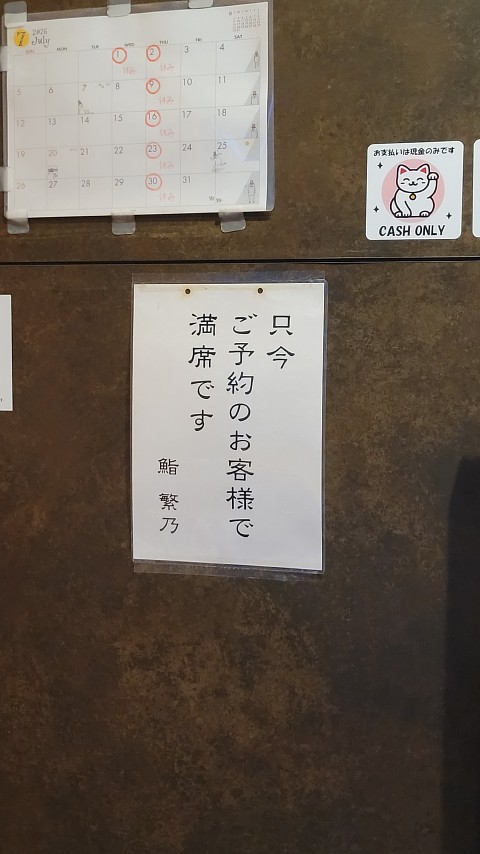 7 2026
July
SUN MON TUE WED THU FRI SAT
1 2 3 4
休み 休み
5 6 7 8 9 10 11
休み
12 13 14 15 16 17 18
休み
19 20 21 22 23 24 25
休み
26 27 28 29 30 31
休み
お支払いは現金のみです
CASH ONLY
只今
ご予約のお客様で
満席です
鮨 繁乃